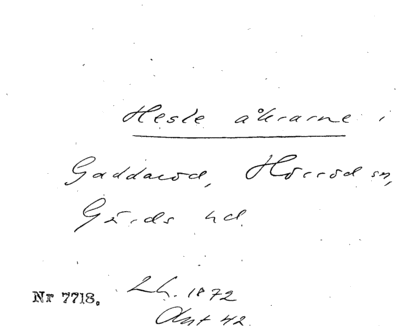 Hesle åkrarne i
Gaddaröd, Hörröd sn,
Gärds hd.
Lh. 1872
Ant 42.
Nr 7718.